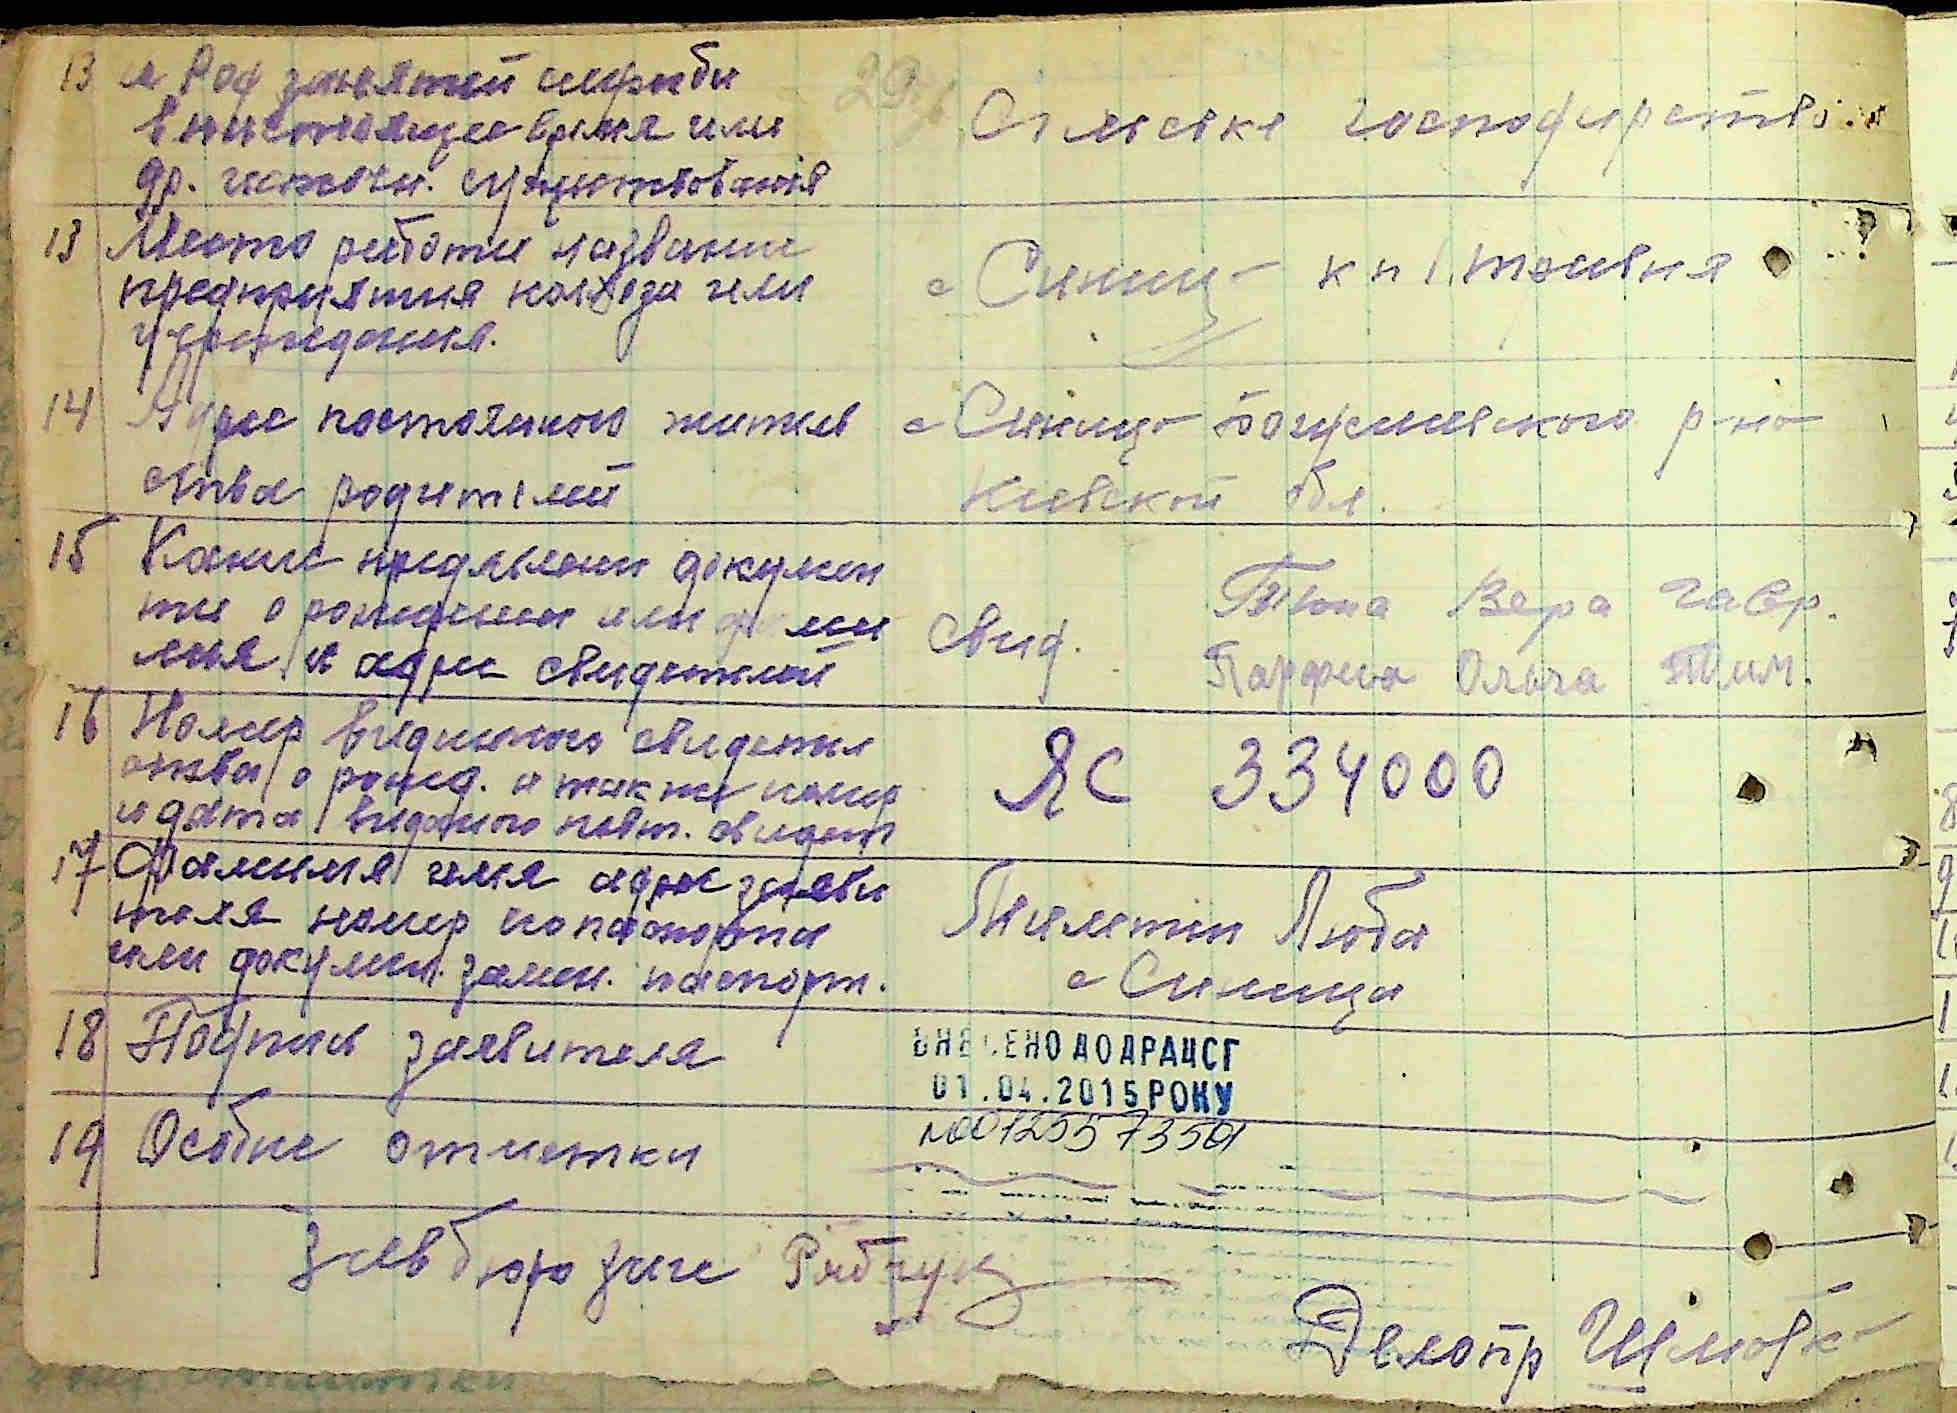 13 и Род занятий службы
в настоящее время или
др. источн. существования
Сільське господарство
13 Место работы название
предприятия колхоза или
учреждения.
с Синиц- к п 1 травня
14 Адрес постоянного житель
ства родителей
с Синиц- Богуславского р-на
Киевской обл.
15 Какие предявлени докумен
ти о рождении или фами
лия и адрес свидетелей
свид.
Вера Гавр.
Ольга Тим.
16 Номер виданного свидетел
ства о рожд. а также номер
и дата виданого повт. свидет
ЯС 334000
17 Фамилия имя адрес заяви
теля номер паспорта
или докумен. замен. паспорт.
Люба
с Синица
18 Подпись заявителя
ВНЕСЕНО ДО ДРАЦСГ
01.04.2015 РОКУ
№00125573501
19 Особие отметки
Зав бюро загс Рябчук
Делопр